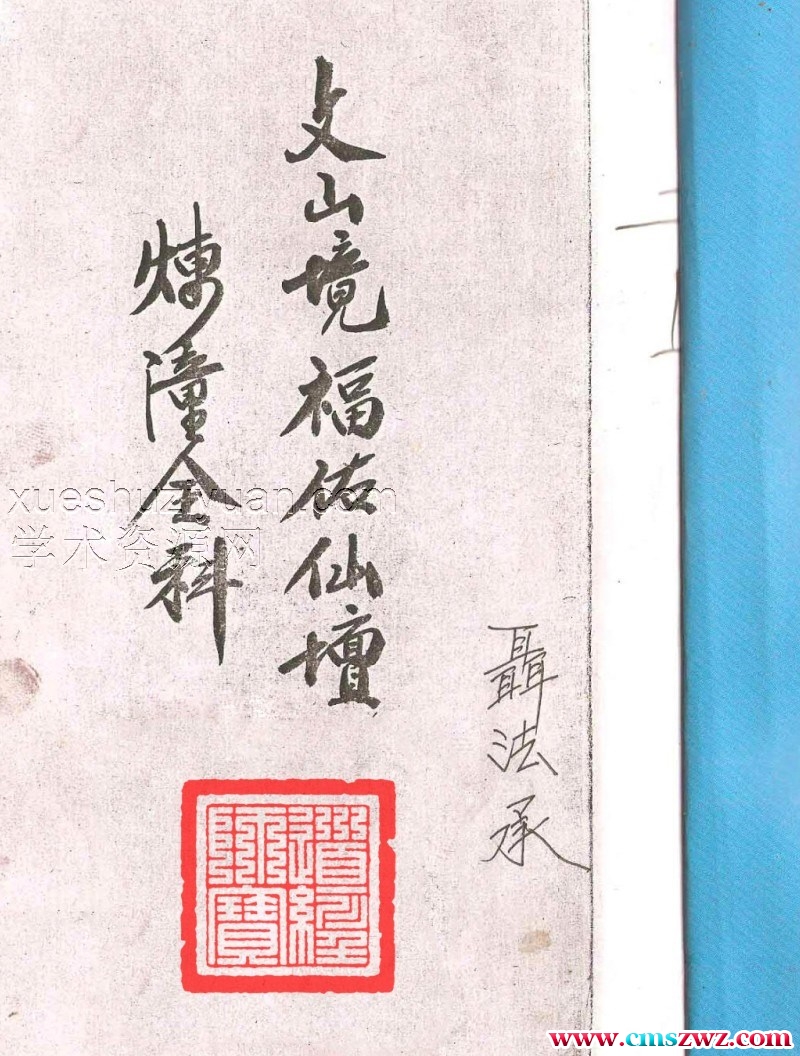 文山境福佑仙壇
煉潼全科
聶法承
道經師寶
xueshuziyuan.com
学术资源网
www.cmszwz.com